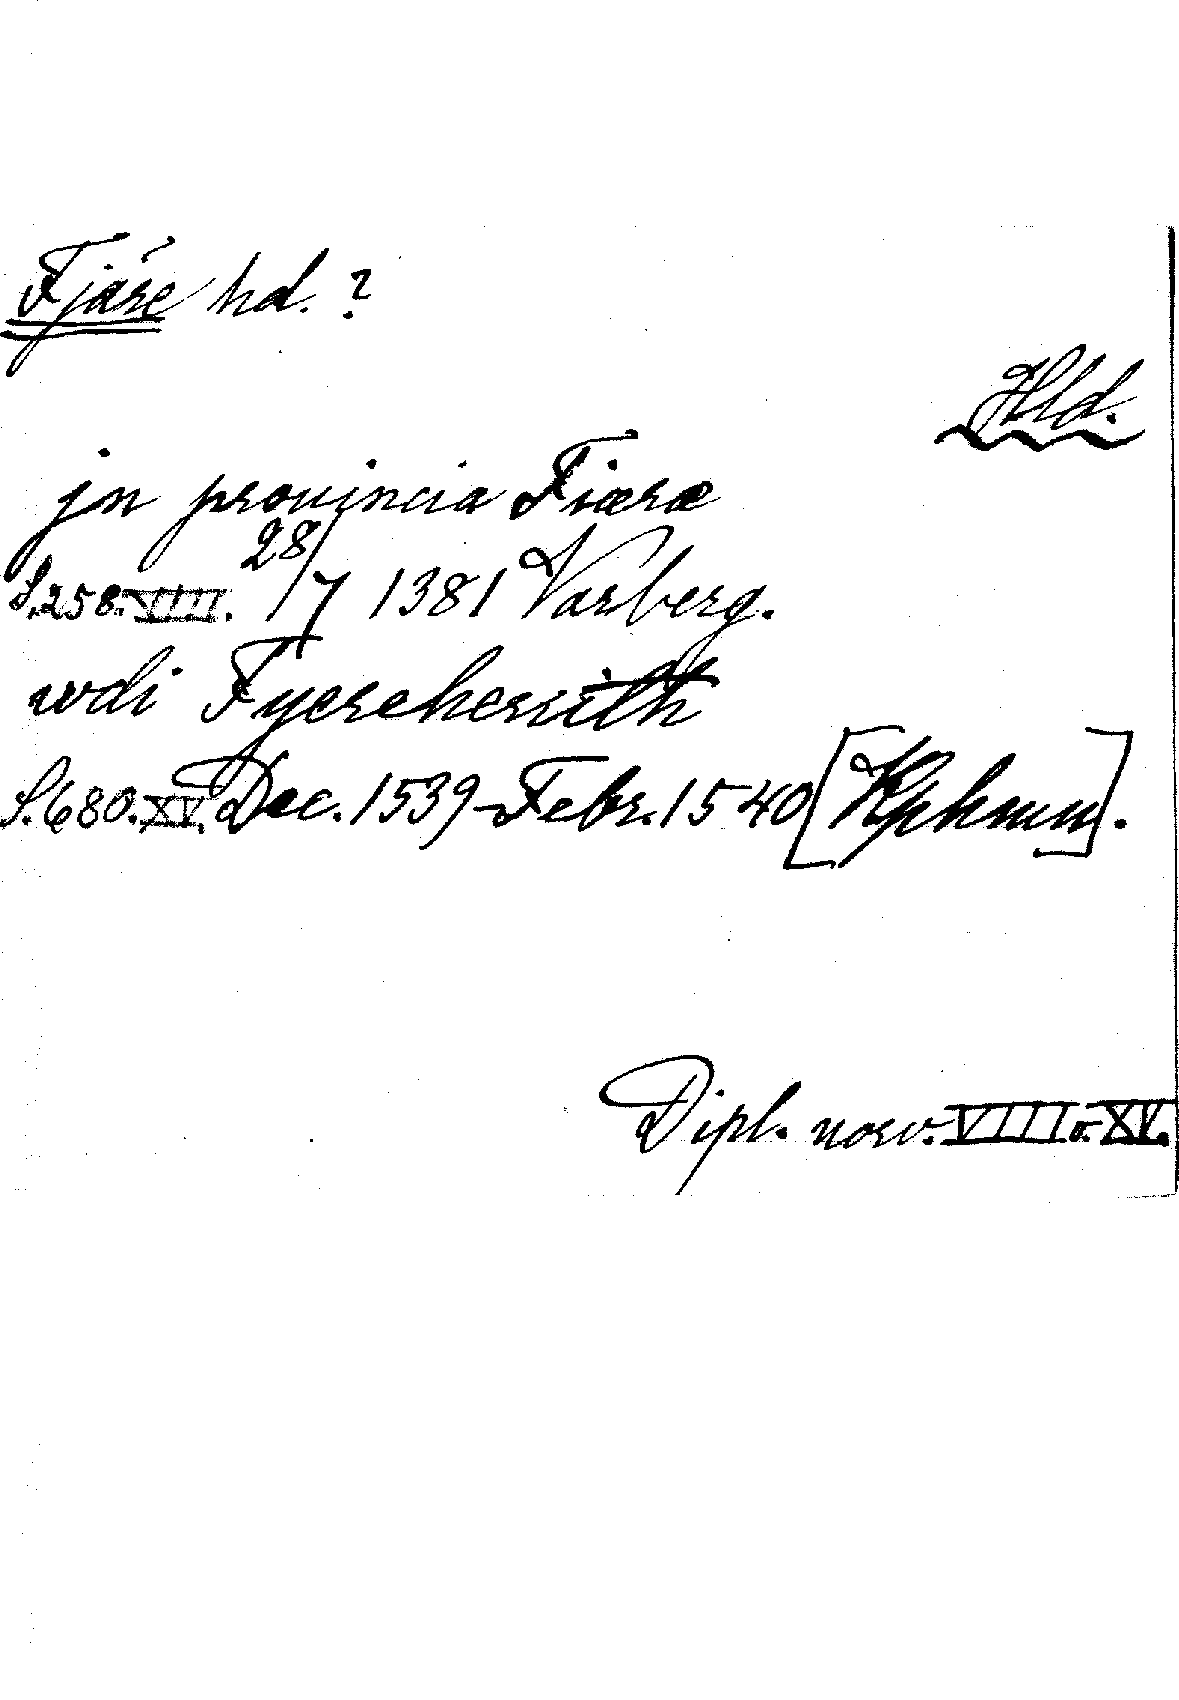 Fjäre hd. ?
Hld.
jn prouincia Fiæræ
S. 258. VIII. 28/7 1381 Varberg.
wdi Fyereherrith
S. 680. XV. Dec. 1539-Febr. 1540 [Kphmn].
Dipl. norv. VIII o. XV.